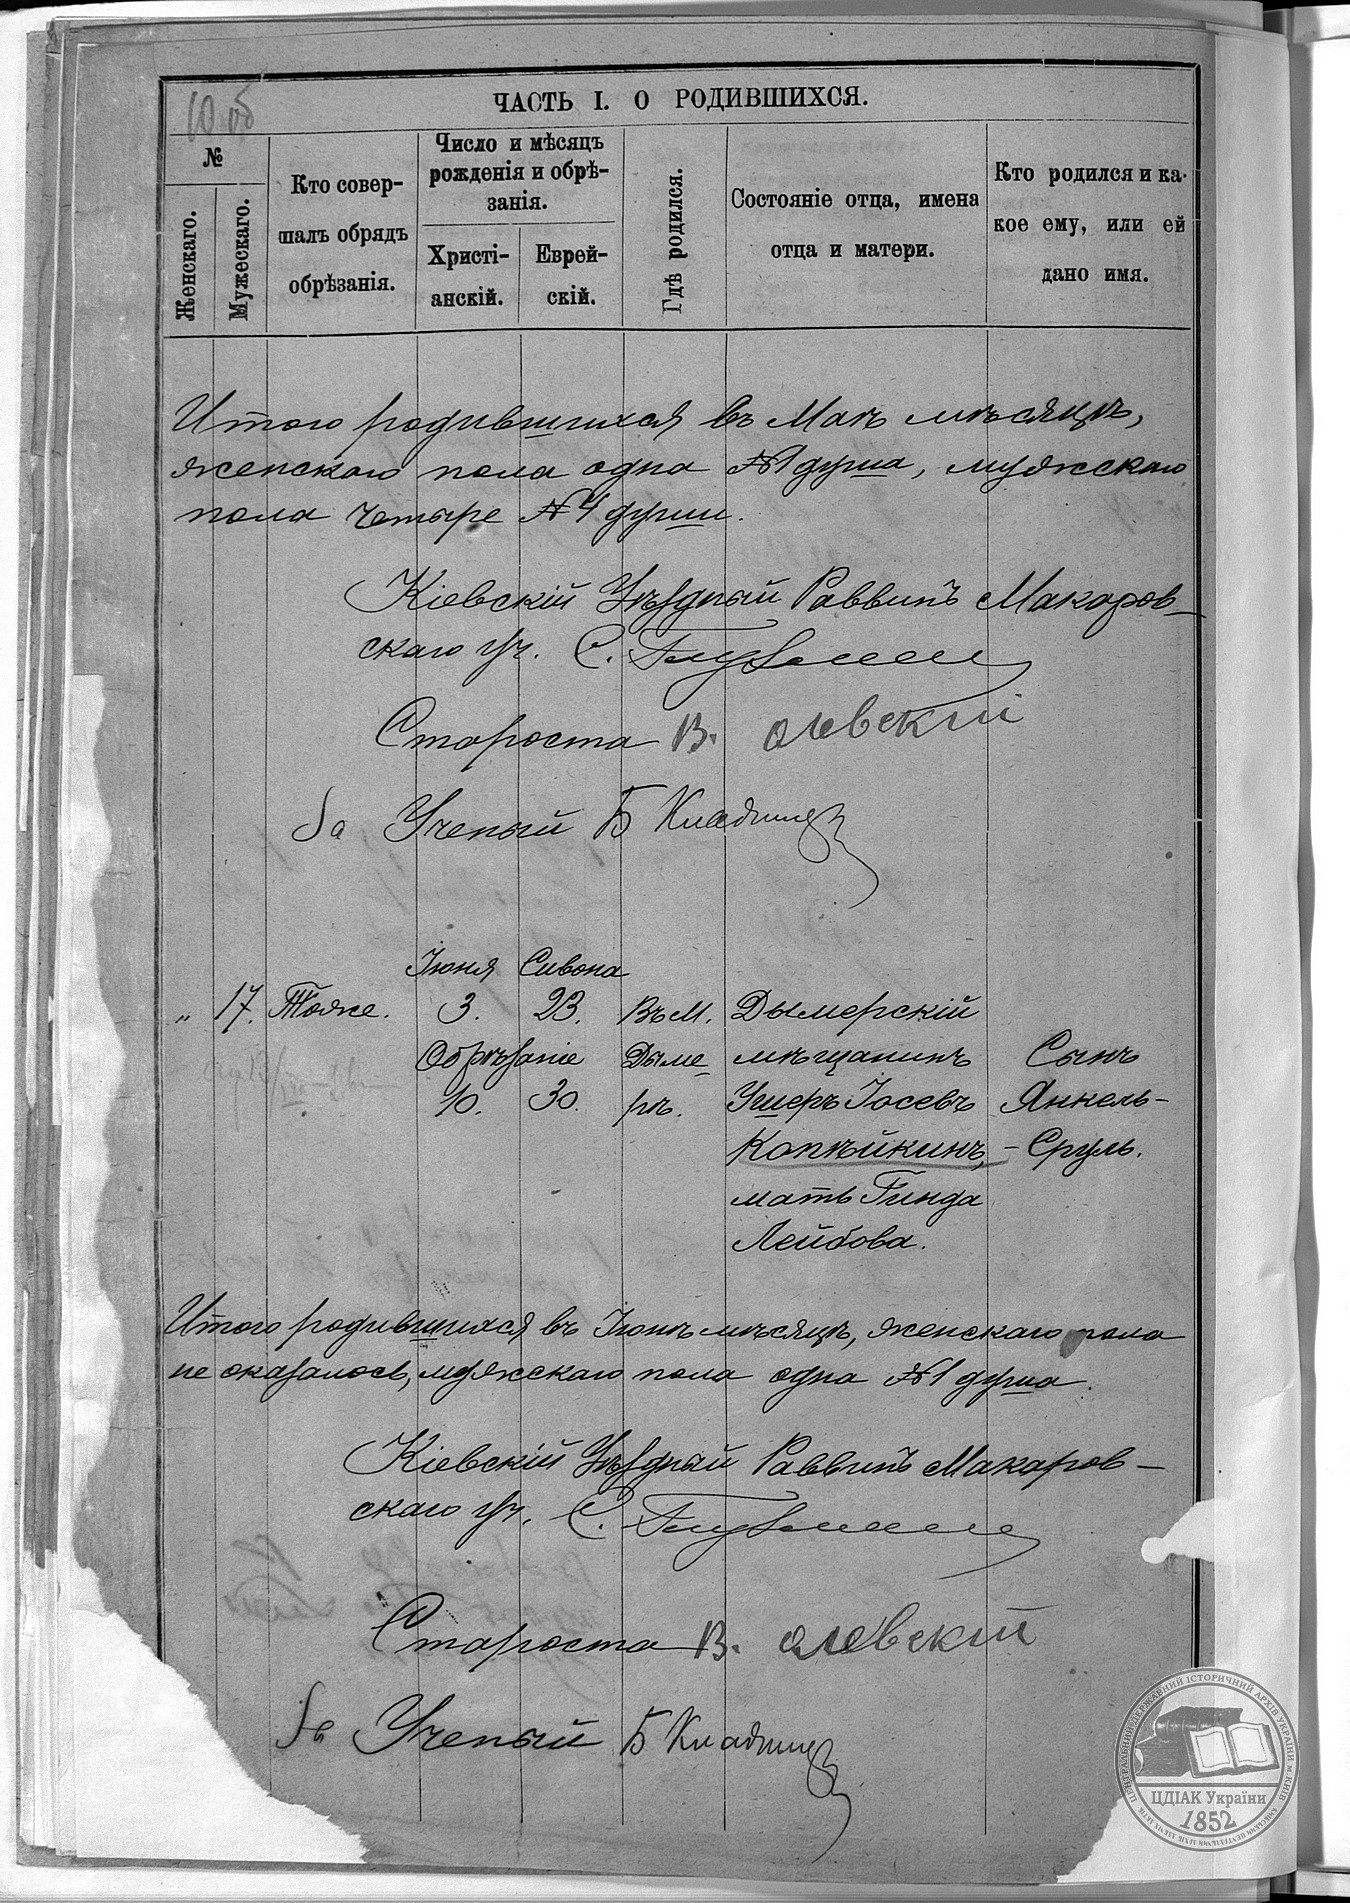 ЧАСТЬ I. О РОДИВШИХСЯ.
№
Женскаго.
Мужескаго.
Кто совер-
шалъ обрядъ
обрѣзанія.
Число и мѣсяцъ
рожденія и обрѣ-
занія.
Христі-
анскій.
Еврей-
скій.
Гдѣ родился.
Состояніе отца, имена
отца и матери.
Кто родился и ка-
кое ему, или ей
дано имя.
Итого родившихся въ Маѣ мѣсяцѣ,
женскаго пола одна №1 душа, мужскаго
пола четыре №4 души.
Кіевскій Уѣздный Раввинъ Макаров-
скаго уч. С.
Староста В.
За Ученый Б
Іюня Сивона
„ 17. Тоже. 3. 23. Въ М. Дымерскій
Обрѣзаніе Дыме- мѣщанинъ Сынъ
10. 30. рѣ. Ушеръ Іосевъ Янкель-
Копѣйкинъ, - Сруль.
мать Гинда
Лейбова.
Итого родившихся въ Іюнѣ мѣсяцѣ, женскаго пола
не оказалось, мужскаго пола одна №1 душа.
Кіевскій Уѣздный Раввинъ Макаров-
скаго уч. С.
Староста В.
За Ученый Б
ЦЕНТРАЛЬНИЙ ДЕРЖАВНИЙ ІСТОРИЧНИЙ АРХІВ УКРАЇНИ м. КИЇВ
ЦДІАК України
1852